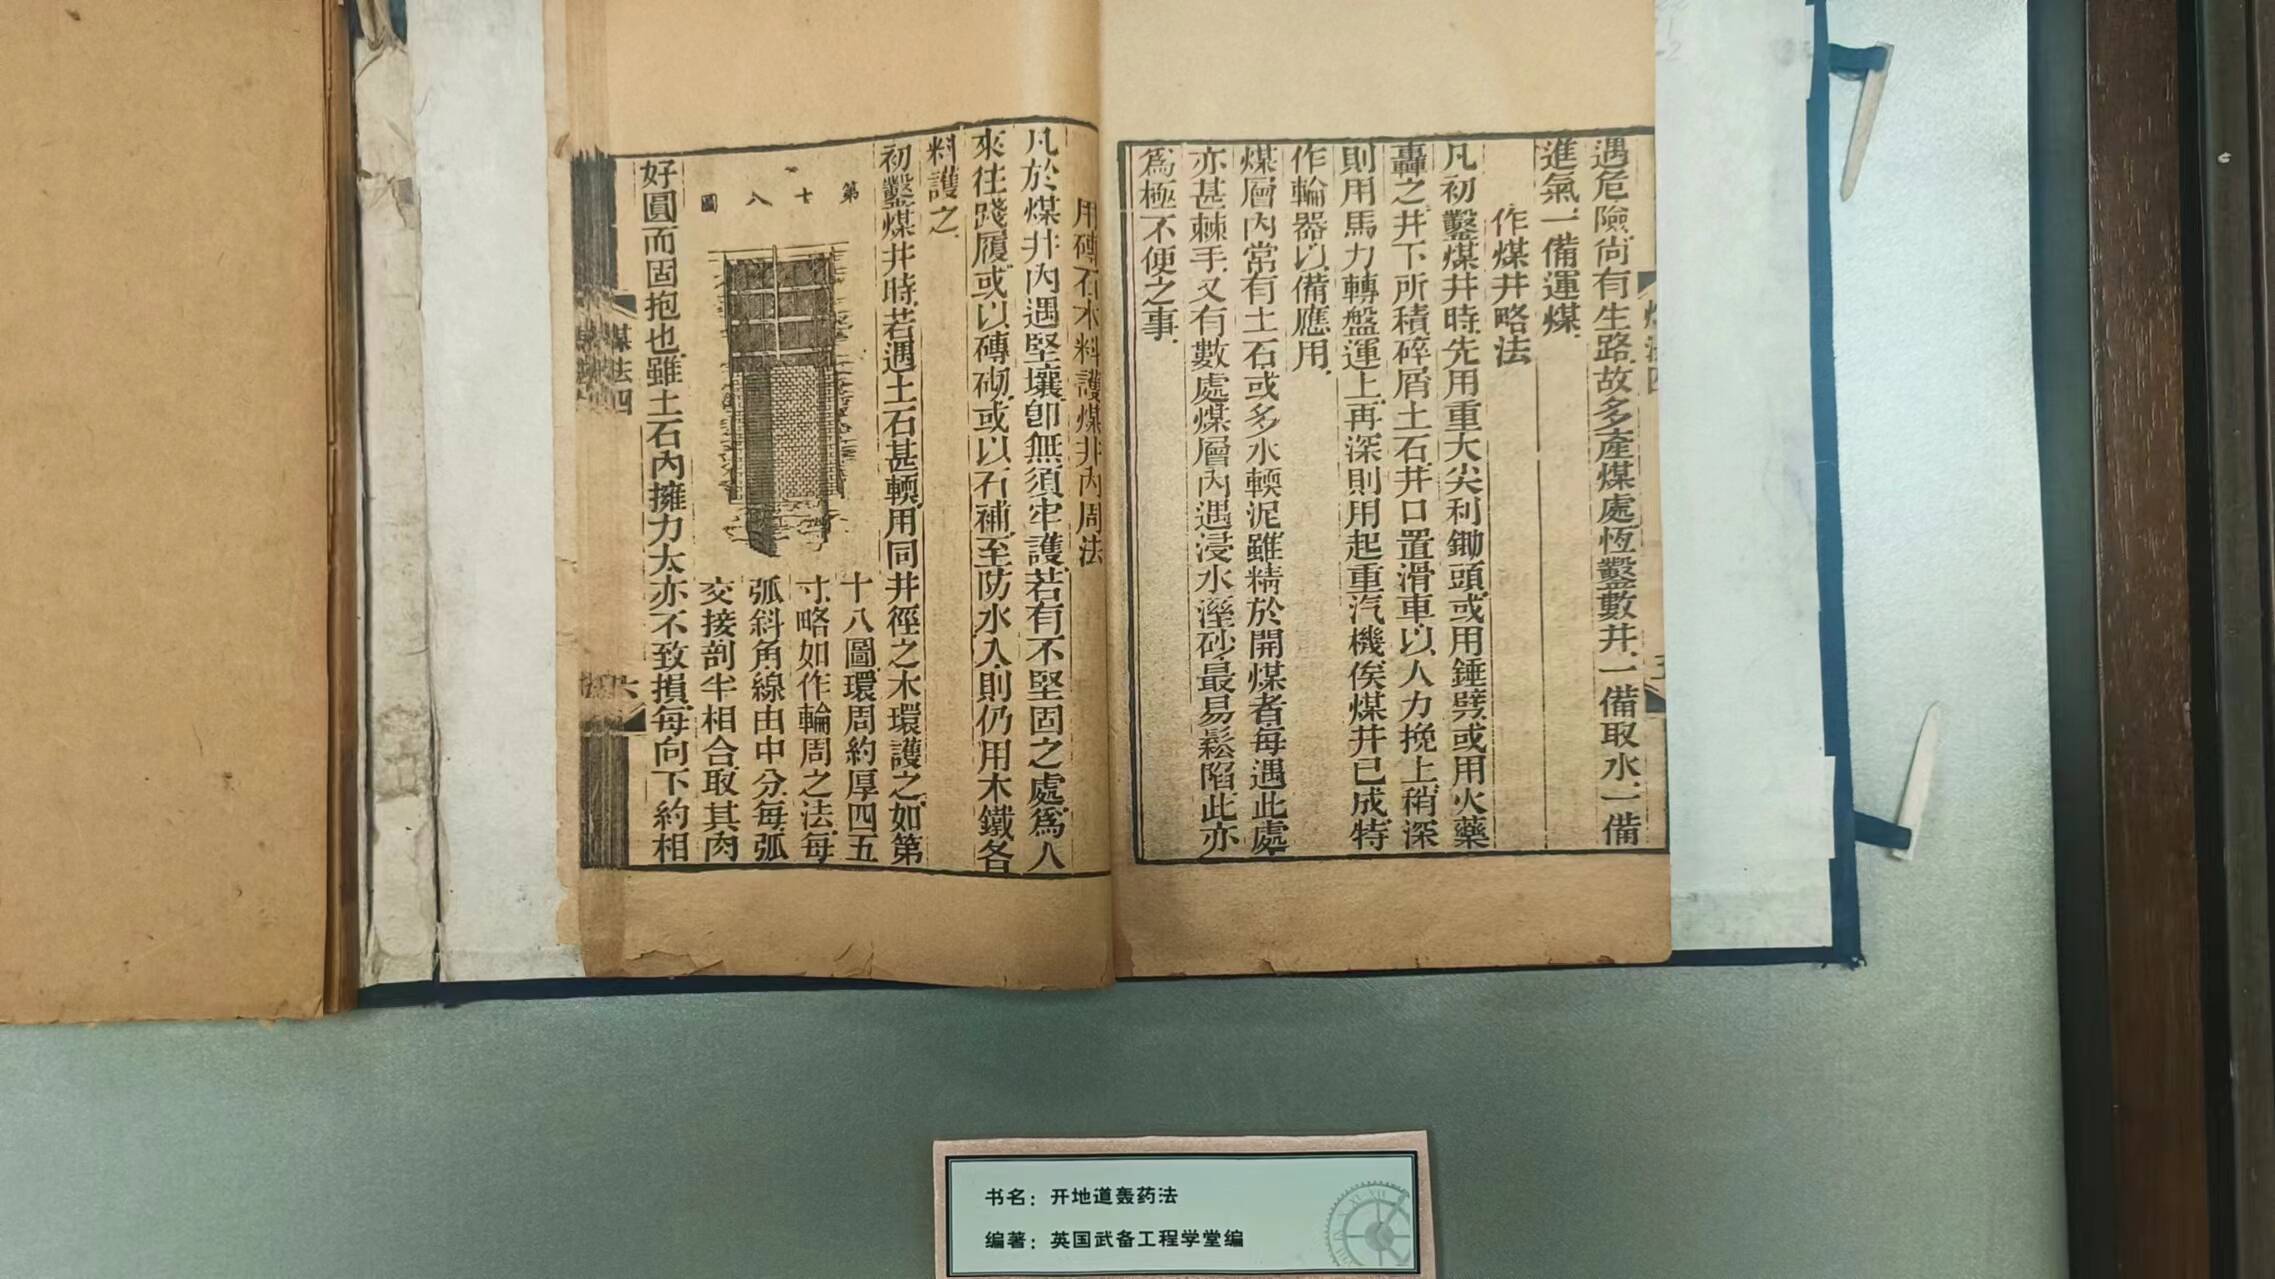 遇危險尚有生路故多產煤處恆鑿數井一備取水一備
進氣一備運煤
作煤井略法
凡初鑿煤井時先用重大尖利鋤頭或用錘劈或用火藥
轟之井下所積碎屑土石井口置滑車以人力挽上稍深
則用馬力轉盤運上再深則用起重汽機俟煤井已成特
作輪器以備應用
煤層內常有土石或多水輭泥雖精於開煤者每遇此處
亦甚棘手又有數處煤層內遇浸水溼砂最易鬆陷此亦
爲極不便之事
用磚石木料護煤井內周法
凡於煤井內遇堅壤卽無須牢護若有不堅固之處爲人
來往踐履或以磚砌或以石補至防水入則仍用木鐵各
料護之
初鑿煤井時若遇土石甚輭用同井徑之木環護之如第
十八圖環周約厚四五
寸略如作輪周之法每
弧斜角線由中分每弧
交接剖半相合取其肉
第十八圖
好圓而固抱也雖土石內擁力大亦不致損每向下約相
煤法四
六
书名：开地道轰药法
编著：英国武备工程学堂编